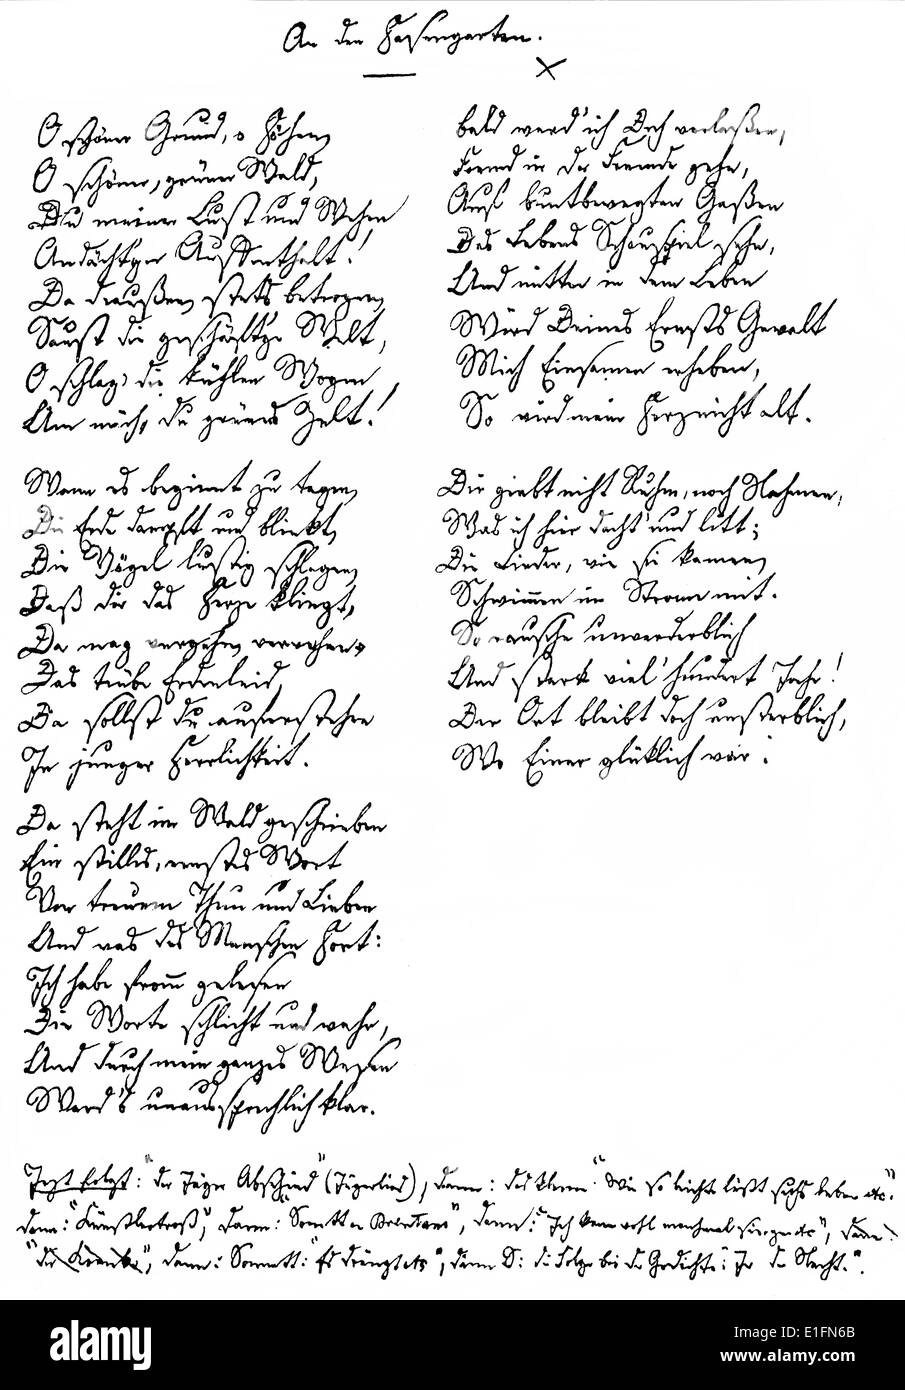 An den Hasengarten.
O schöner Grund, o Höhen,
O schöner, grüner Wald,
Du meiner Lust und Wehen
Andächt'ger Auffenthalt!
Da draußen, stets betrogen,
Saust die geschäft'ge Welt,
O schlag' die kühlen Wogen
Um mich, du grünes Zelt!
Wenn es beginnt zu tagen,
Die Erde dampft und blinkt,
Die Vögel lustig schlagen,
Daß dir das Herze klingt,
Da mag vergehn, verwehen
Das trübe Erdenleid,
Da sollst du auferstehen
In junger Herrlichkeit.
Da steht im Wald geschrieben
Ein stilles, ernstes Wort
Von treuem Thun und Lieben
Und was des Menschen Hort:
Ich habe fromm gelesen
Die Worte schlicht und wahr,
Und durch mein ganzes Wesen
Ward's unaussprechlich klar.
Bald werd' ich Dich verlaßen,
Fremd in der Fremde gehn,
Auf buntbewegten Gaßen
Des Lebens Schauspiel sehn,
Und mitten in dem Leben
Wird Deines Ernsts Gewalt
Mich Einsamen erheben,
So wird mein Herz nicht alt.
Dir giebt nicht Ruhm, noch Nahmen,
Was ich hier dacht und litt;
Die Lieder, wie sie kamen,
Schwimmen im Strome mit.
So rausche unverderblich
Und stark viel' hundert Jahr!
Der Ort bleibt doch unsterblich,
Wo Einer glücklich war.
Jezt folgt: "der Jäger Abschied" (Jägerlied), dann: das kleine "Wie so leichte läßt sichs leben etc."
dann: dann: "Sonett an", dann: "Ich kann wohl manchmal singen etc", dann:
"die", dann: Sonnett: "Es etc", dann die Folge bei d. Gedichte: In der Nacht.".
alamy
E1FN6B
www.alamy.com